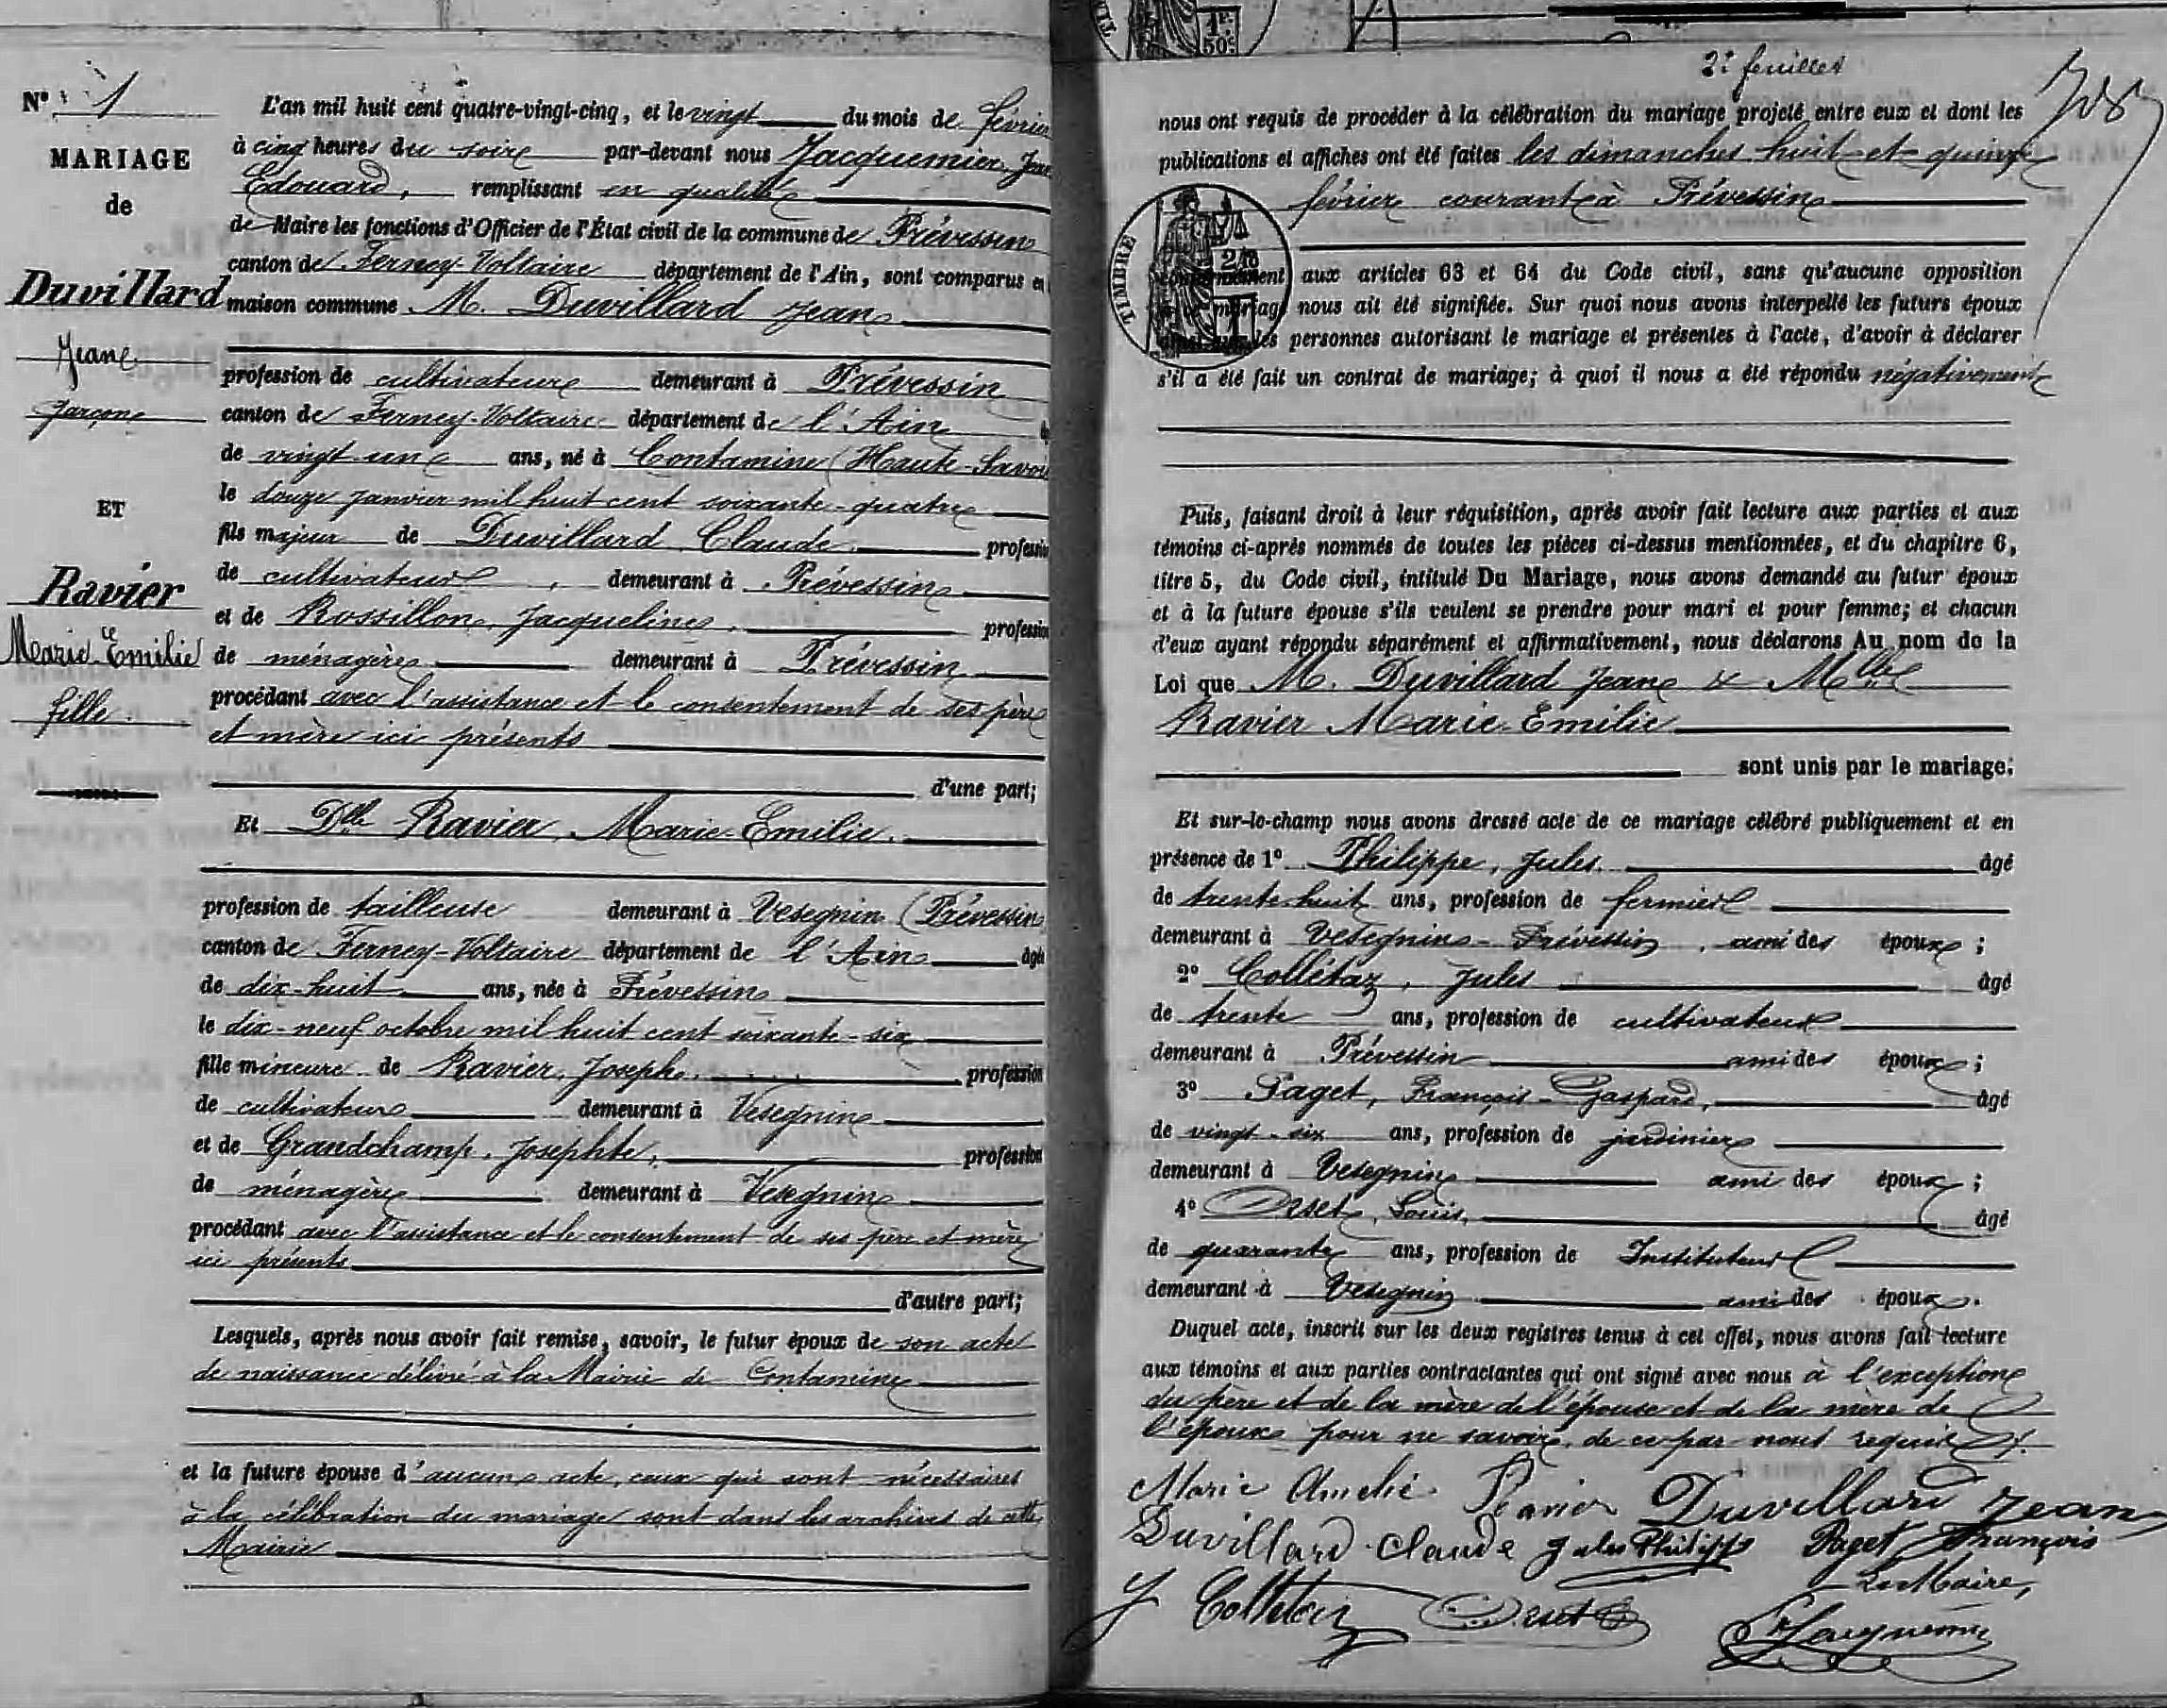 N° 1
MARIAGE
de
Duvillard
Jean
garçon
ET
Ravier
Marie-Emilie
fille
L'an mil huit cent quatre-vingt-cinq, et le vingt du mois de février
à cinq heures du soir par-devant nous Jacquemier, Jean
Edouard, remplissant en qualité
de Maire les fonctions d'Officier de l'État civil de la commune de Prévessin
canton de Ferney-Voltaire département de l'Ain, sont comparus en
maison commune M. Duvillard Jean
profession de cultivateur demeurant à Prévessin
canton de Ferney-Voltaire département de l'Ain
de vingt un ans, né à Contamine (Haute-Savoie
le douze janvier mil huit cent soixante-quatre
fils majeur de Duvillard Claude profession
de cultivateur, demeurant à Prévessin
et de Rossillon, Jacqueline, profession
de ménagère demeurant à Prévessin
procédant avec l'assistance et le consentement de ses père
et mère ici présents
d'une part;
Et Dlle Ravier, Marie-Emilie.
profession de tailleuse demeurant à Vesegnin (Prévessin
canton de Ferney-Voltaire département de l'Ain âgée
de dix-huit ans, née à Prévessin
le dix-neuf octobre mil huit cent soixante-six
fille mineure de Ravier, Joseph, profession
de cultivateur demeurant à Vesegnin
et de Grandchamp, Josephte, profession
de ménagère demeurant à Vesegnin
procédant avec l'assistance et le consentement de ses père et mère
ici présents
d'autre part;
Lesquels, après nous avoir fait remise, savoir, le futur époux de son acte
de naissance délivré à la Mairie de Contamine
et la future épouse d'aucun acte, ceux qui sont nécessaires
à la célébration du mariage sont dans les archives de cette
Mairie
2e feuillet
nous ont requis de procéder à la célébration du mariage projeté entre eux et dont les
publications et affiches ont été faites les dimanches huit et quinze
février courant à Prévessin
TIMBRE
conformément aux articles 63 et 64 du Code civil, sans qu'aucune opposition
mariage nous ait été signifiée. Sur quoi nous avons interpellé les futurs époux
les personnes autorisant le mariage et présentes à l'acte, d'avoir à déclarer
s'il a été fait un contrat de mariage; à quoi il nous a été répondu négativement
Puis, faisant droit à leur réquisition, après avoir fait lecture aux parties et aux
témoins ci-après nommés de toutes les pièces ci-dessus mentionnées, et du chapitre 6,
titre 5, du Code civil, intitulé Du Mariage, nous avons demandé au futur époux
et à la future épouse s'ils veulent se prendre pour mari et pour femme; et chacun
d'eux ayant répondu séparément et affirmativement, nous déclarons Au nom de la
Loi que M. Duvillard Jean & Mlle
Ravier Marie-Emilie
sont unis par le mariage;
Et sur-le-champ nous avons dressé acte de ce mariage célébré publiquement et en
présence de 1° Philippe, Jules. âgé
de trente-huit ans, profession de fermier
demeurant à Vesegnin-Prévessin, ami des époux;
2° Collétaz, Jules âgé
de trente ans, profession de cultivateur
demeurant à Prévessin ami des époux;
3° Paget, François-Gaspard, âgé
de vingt-six ans, profession de jardinier
demeurant à Vesegnin ami des époux;
4° Orset, Louis, âgé
de quarante ans, profession de Instituteur
demeurant à Vesegnin ami des époux.
Duquel acte, inscrit sur les deux registres tenus à cet effet, nous avons fait lecture
aux témoins et aux parties contractantes qui ont signé avec nous à l'exception
du père et de la mère de l'épouse et de la mère de
l'époux pour ne savoir, de ce par nous requis.
Marie Amelie Ravier Duvillard Jean
Duvillard Claude Jules Philippe Paget François
Le Maire,
J Colletaz Orset